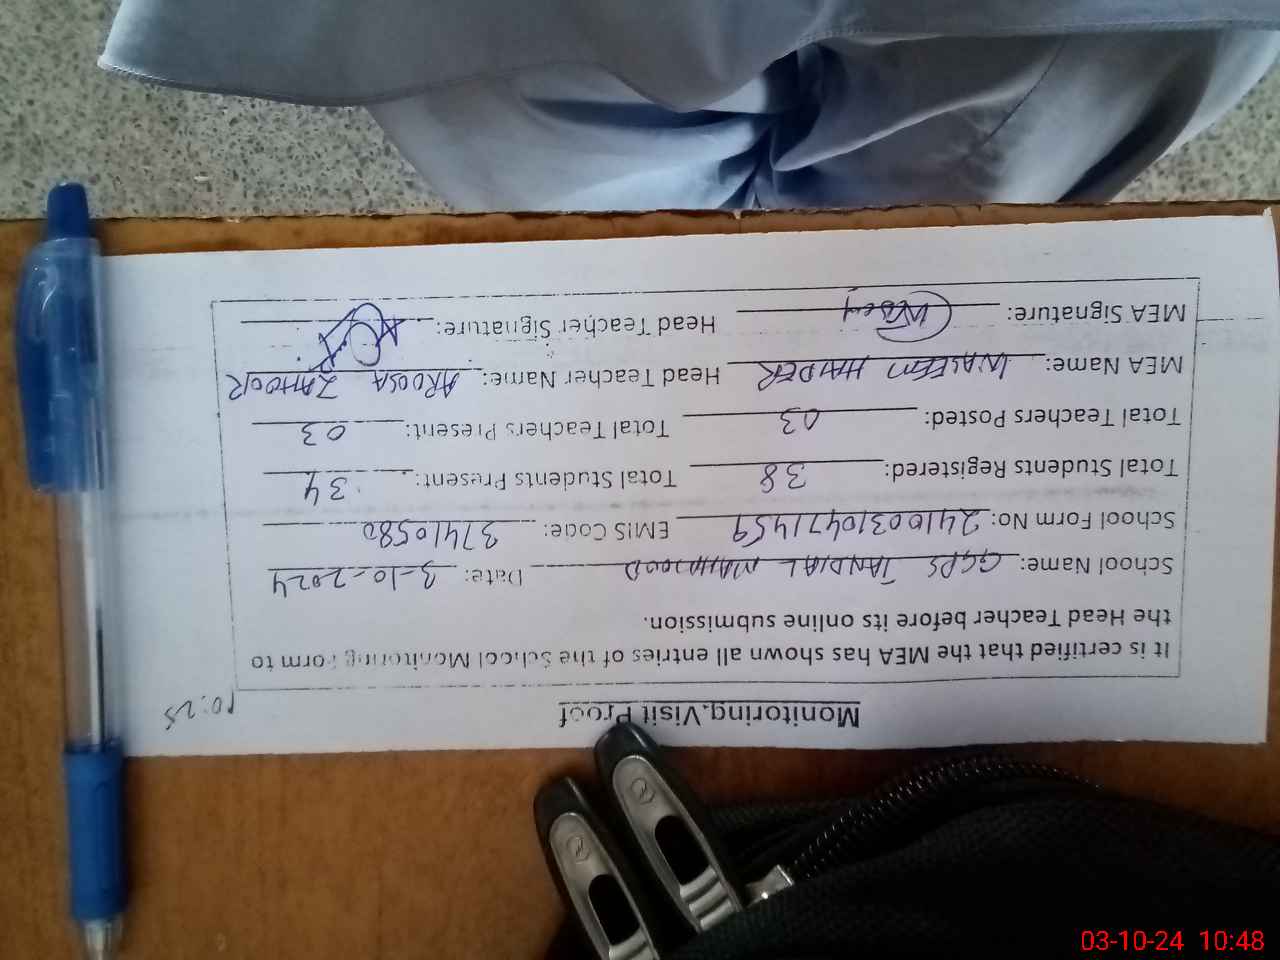 Monitoring Visit Proof
10:25
It is certified that the MEA has shown all entries of the School Monitoring Form to
the Head Teacher before its online submission.
School Name: GGPS TANDIAL MAHMOOD Date: 3-10-2024
School Form No: 24100310471459 EMIS Code: 37410580
Total Students Registered: 38 Total Students Present: 34
Total Teachers Posted: 03 Total Teachers Present: 03
MEA Name: WASEEM HAIDER Head Teacher Name: AROOSA ZAHOOR
MEA Signature: Head Teacher Signature:
03-10-24 10:48